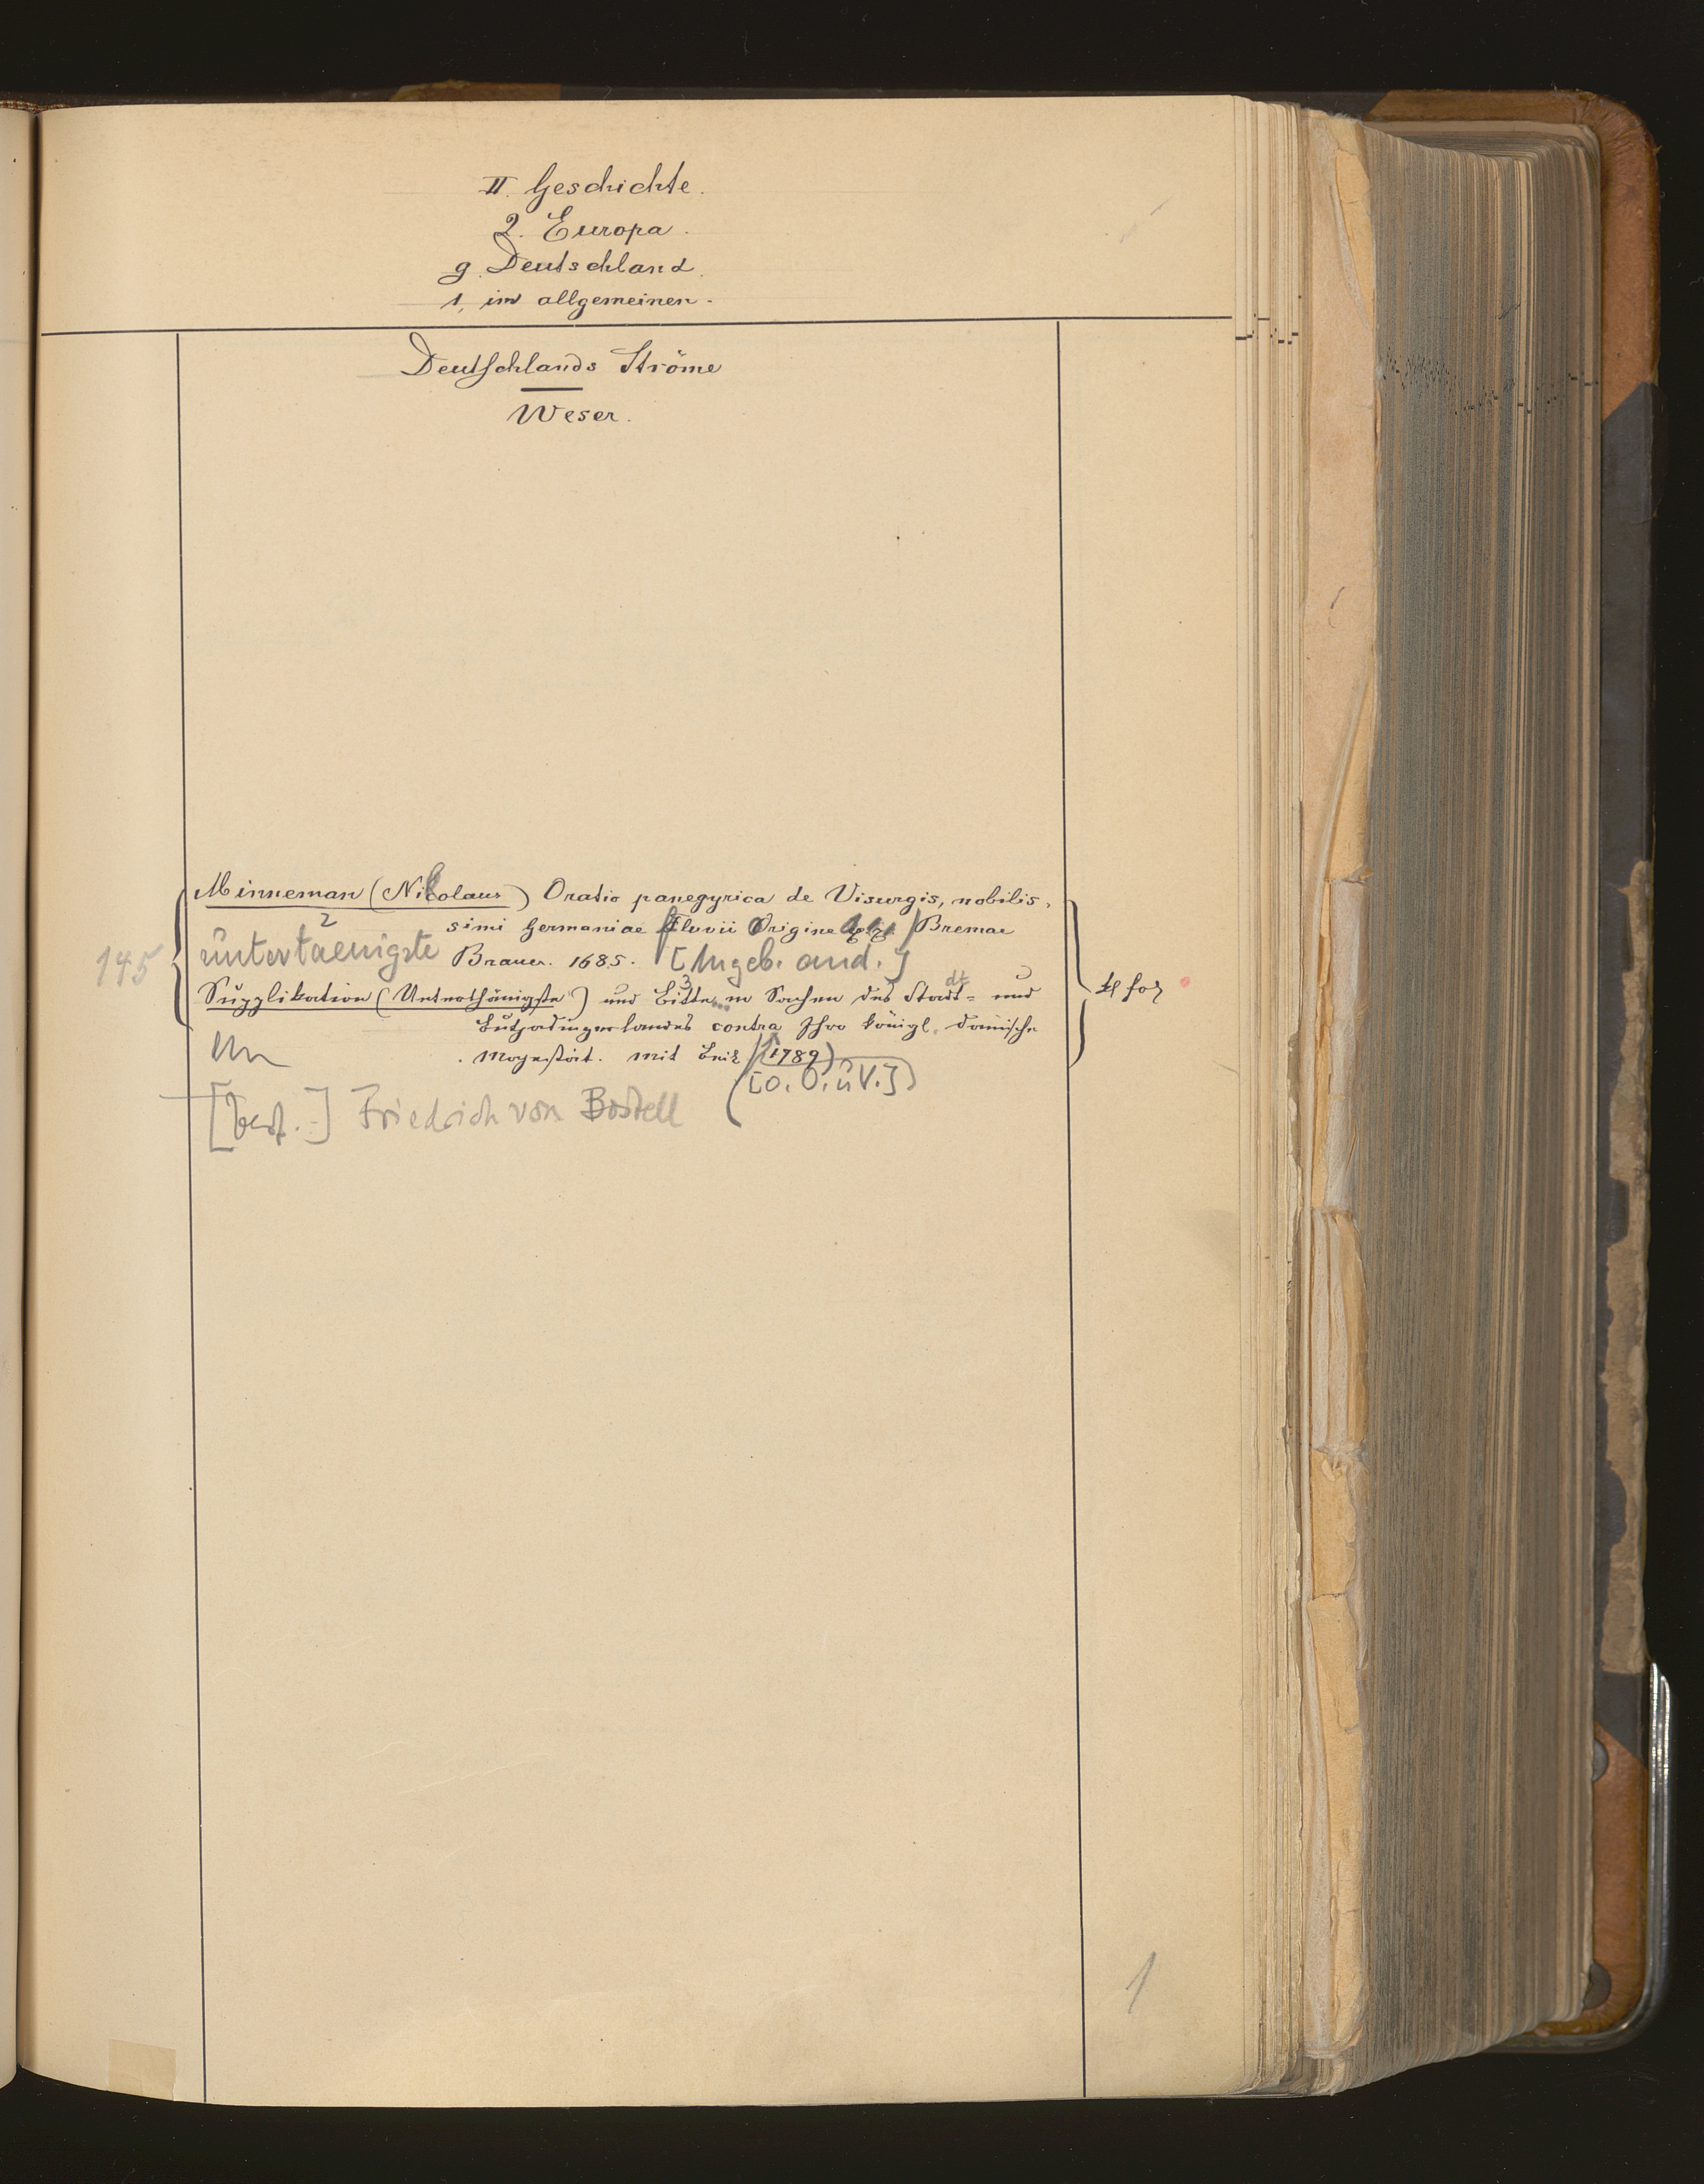 II. Geschichte.
2. Europa.
g. Deutschland.
1, im allgemeinen.
Deutschlands Ströme
Weser.
Minneman (Nikolaus) Oratio panegyrica de Visurgis, nobilis-
simi Germaniae fluvii Origine Bremae
2
untertaenigste Brauer. 1685. [Angeb. and.]
145
Supplikation (Unterthänigste) und Bitte in Sachen des Stadt= und
3
dt
Butjadingerlandes contra Ihro königl. dänische
Majestät. mit Beil. (1789)
[o. O. u V.]
[Verf.] Friedrich von Bostell
4 for
1